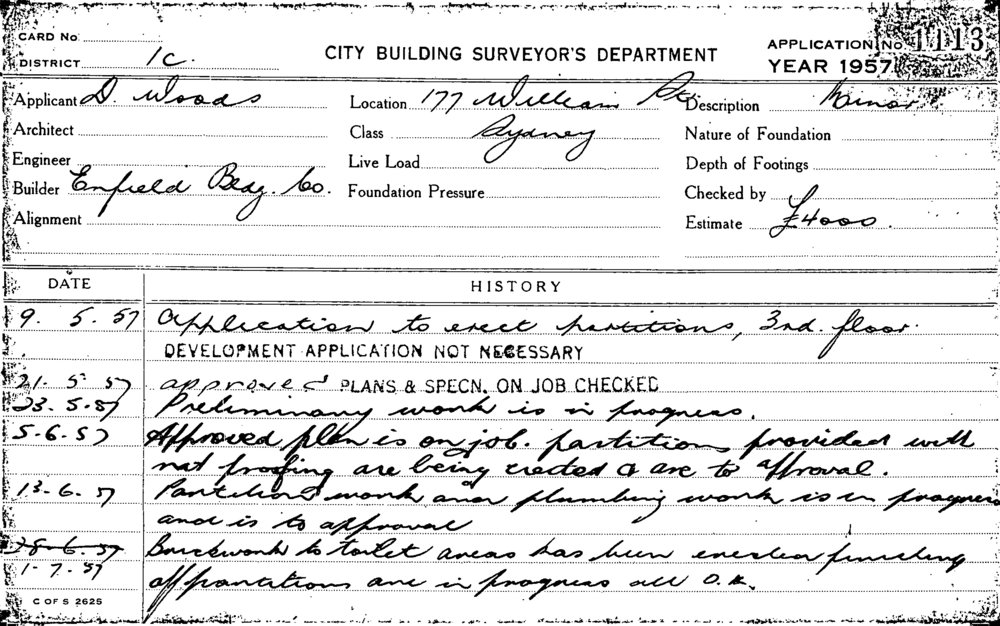 CARD No
DISTRICT 1C.
CITY BUILDING SURVEYOR'S DEPARTMENT
APPLICATION No 1113
YEAR 1957
Applicant D. Woods
Location 177 William St.
Description Minor.
Architect
Class Sydney
Nature of Foundation
Engineer
Live Load
Depth of Footings
Builder Enfield Bldg. Co.
Foundation Pressure
Checked by
Alignment
Estimate £4000.
DATE HISTORY
9. 5. 57 Application to erect partitions, 3rd. floor.
DEVELOPMENT APPLICATION NOT NECESSARY
21. 5 57 approved PLANS & SPECN. ON JOB CHECKED
23. 5. 57 Preliminary work is in progress.
5. 6. 57 Approved plan is on job. partitions provided with
rat proofing are being erected & are to approval.
13. 6. 57 Partition work and plumbing work is in progress
and is to approval
28. 6. 57 Brickwork to toilet areas has been erected finishing
1. 7. 57 off partitions are in progress all O.K.
C OF S 2625